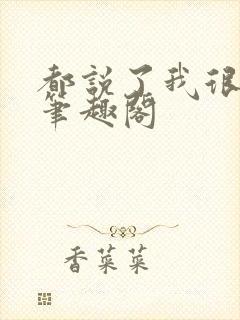 都説了我很
筆趣閣
香菜菜